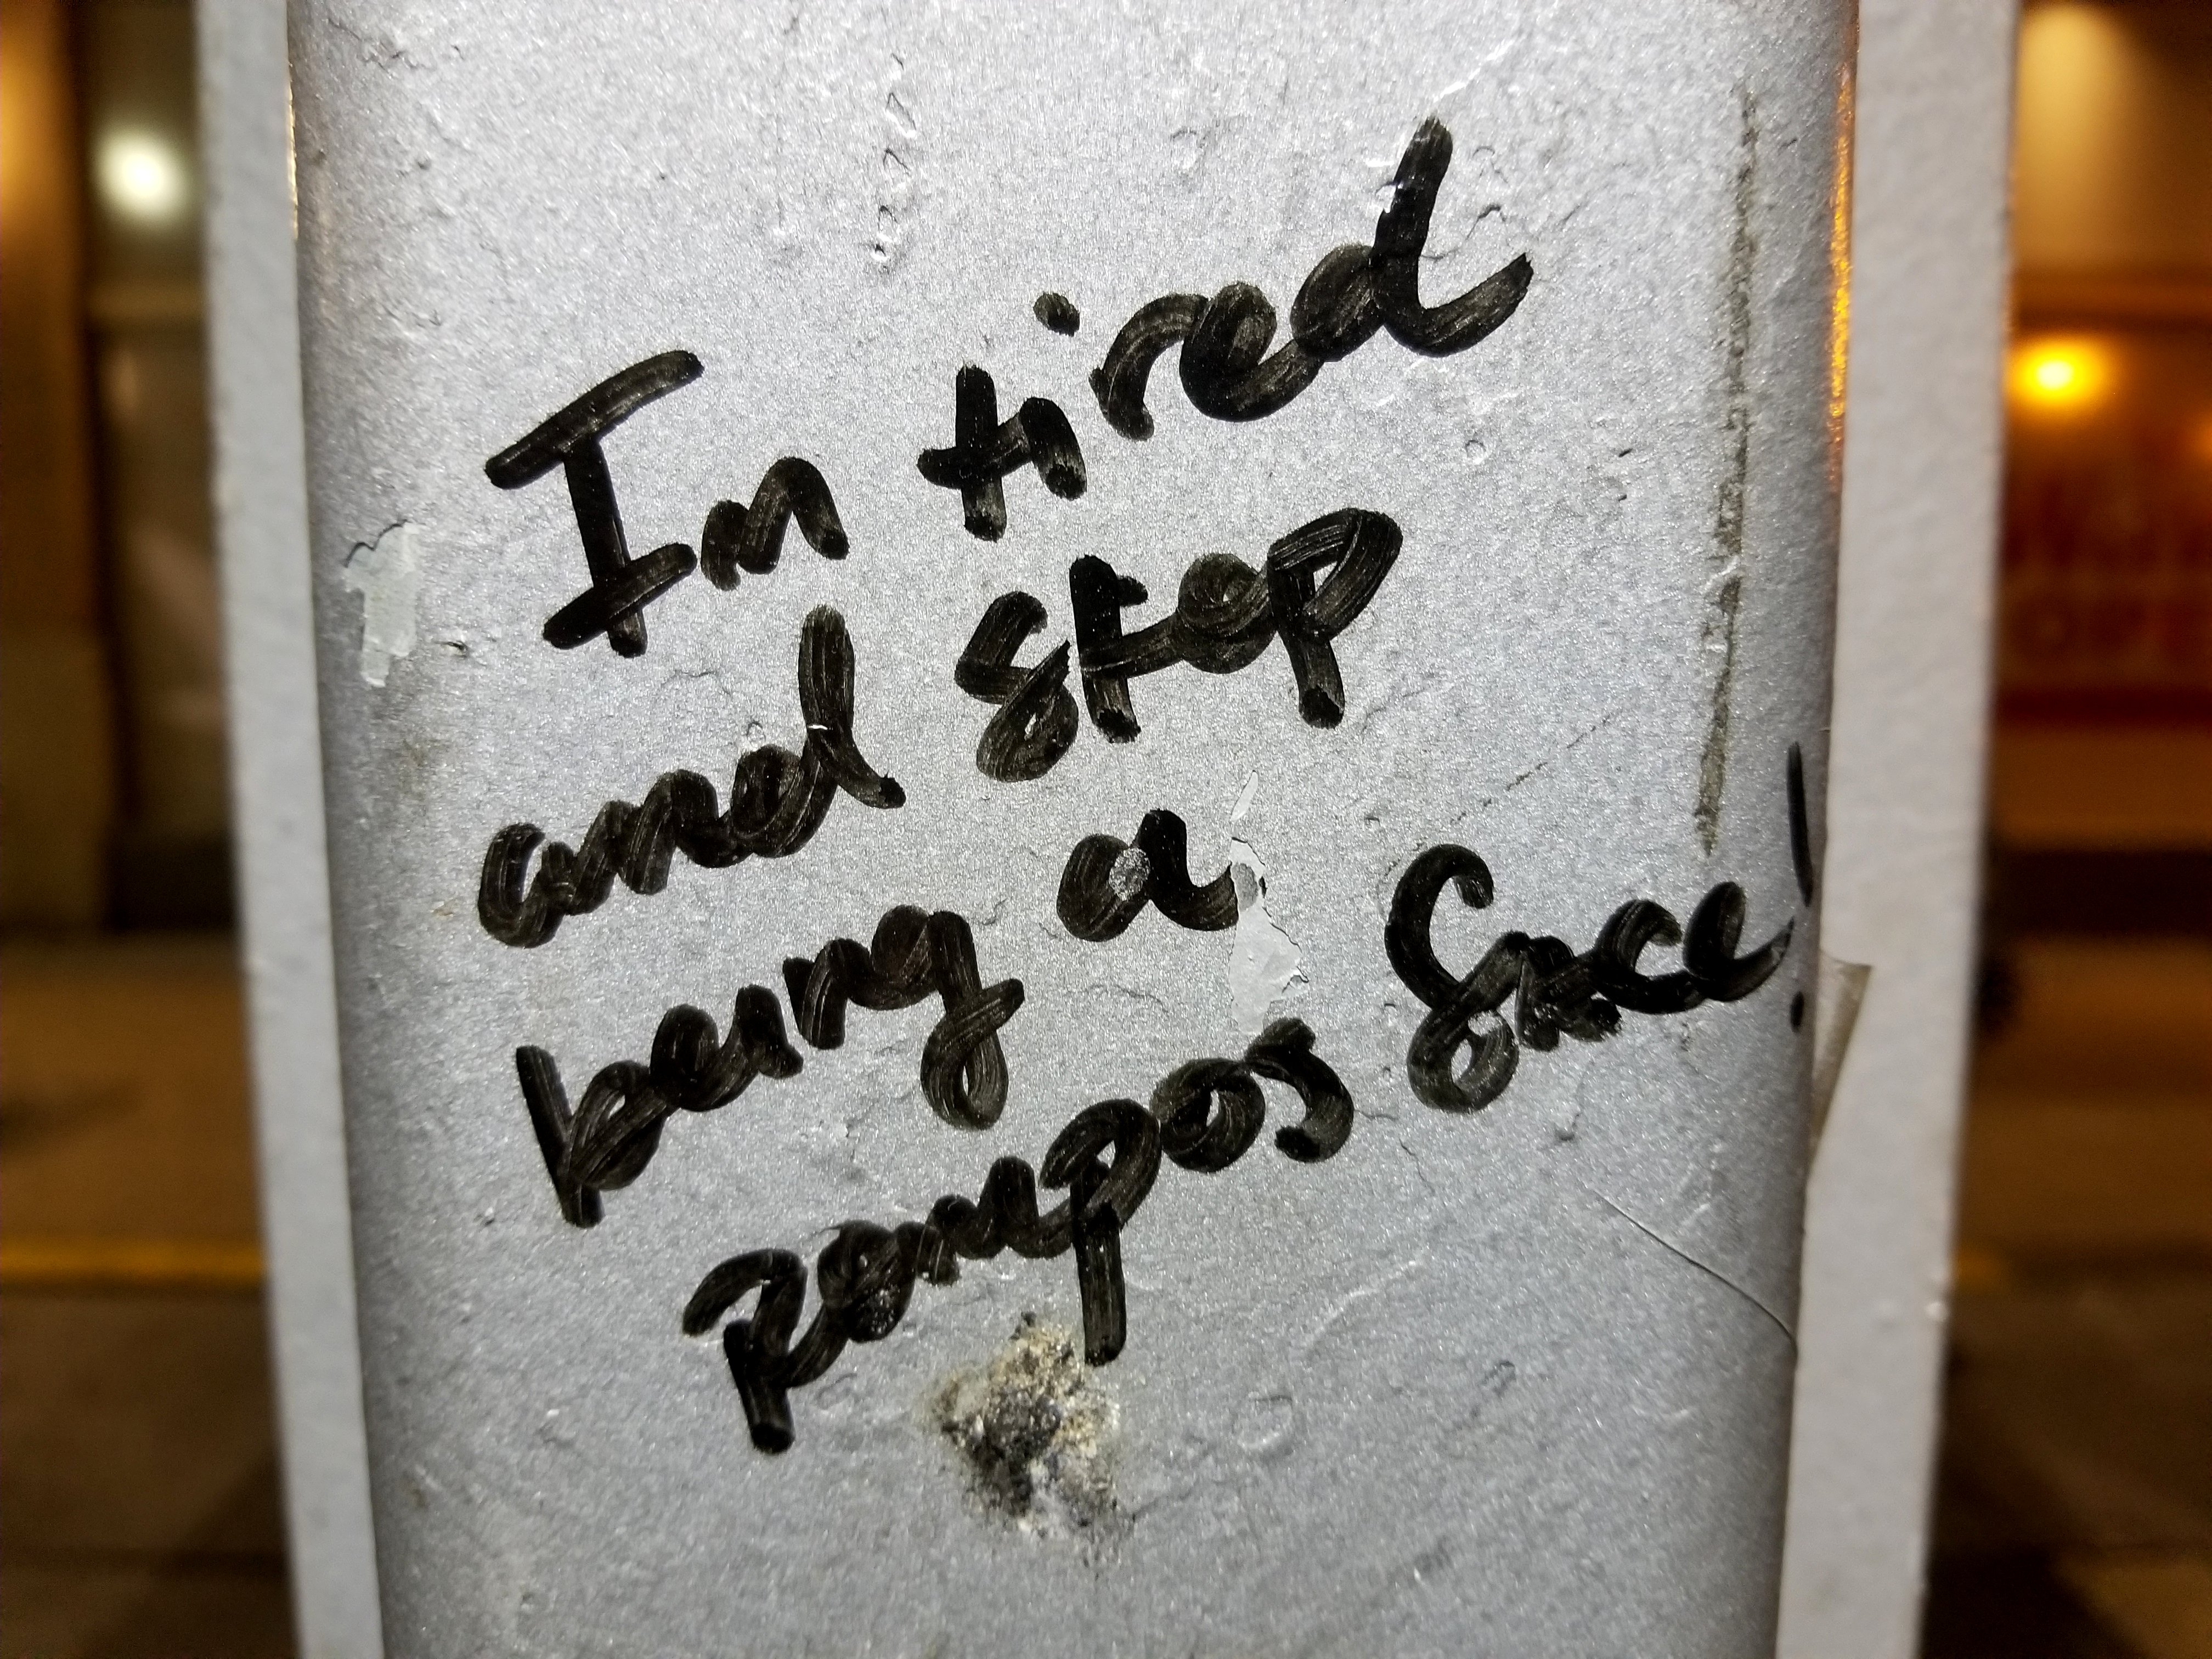 Im tired
and stop
being a
Rompos Since!